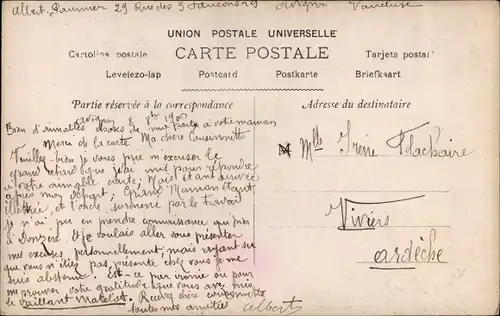 Albert Saunier 29 Rue des 3 Faucons 29 Avignon Vaucluse
UNION POSTALE UNIVERSELLE
CARTE POSTALE
Cartolina postale
Tarjeta postal
Levelezo-lap Postcard Postkarte Briefkaart
Partie réservée à la correspondance
Adresse du destinataire
Avignon 8 8bre
Bien d'aimables choses de ma part à votre maman
Merci de la carte Ma chère cousinette
Veuillez-bien je vous prie m'excuser le
grand retard que j'ai mis pour répondre
à votre aimable carte. Mais étant arrivée
après mon départ, Grand Maman étant
illettrée, et l'oncle, surmené par le travail
je n'ai pu en prendre connaissance qu'hier
à Donzère. Et je voulais aller vous présenter
mes excuses personnellement, mais sachant
que vous n'étiez pas présente chez vous je me
suis abstenu. Est-ce par ironie ou pour
me prouver votre gratitude que vous avez mis
le vaillant Matelot. Recevez chère cousinette
toutes mes amitiés Albert
Mlle Irène Flachaire
Viviers
ardèche